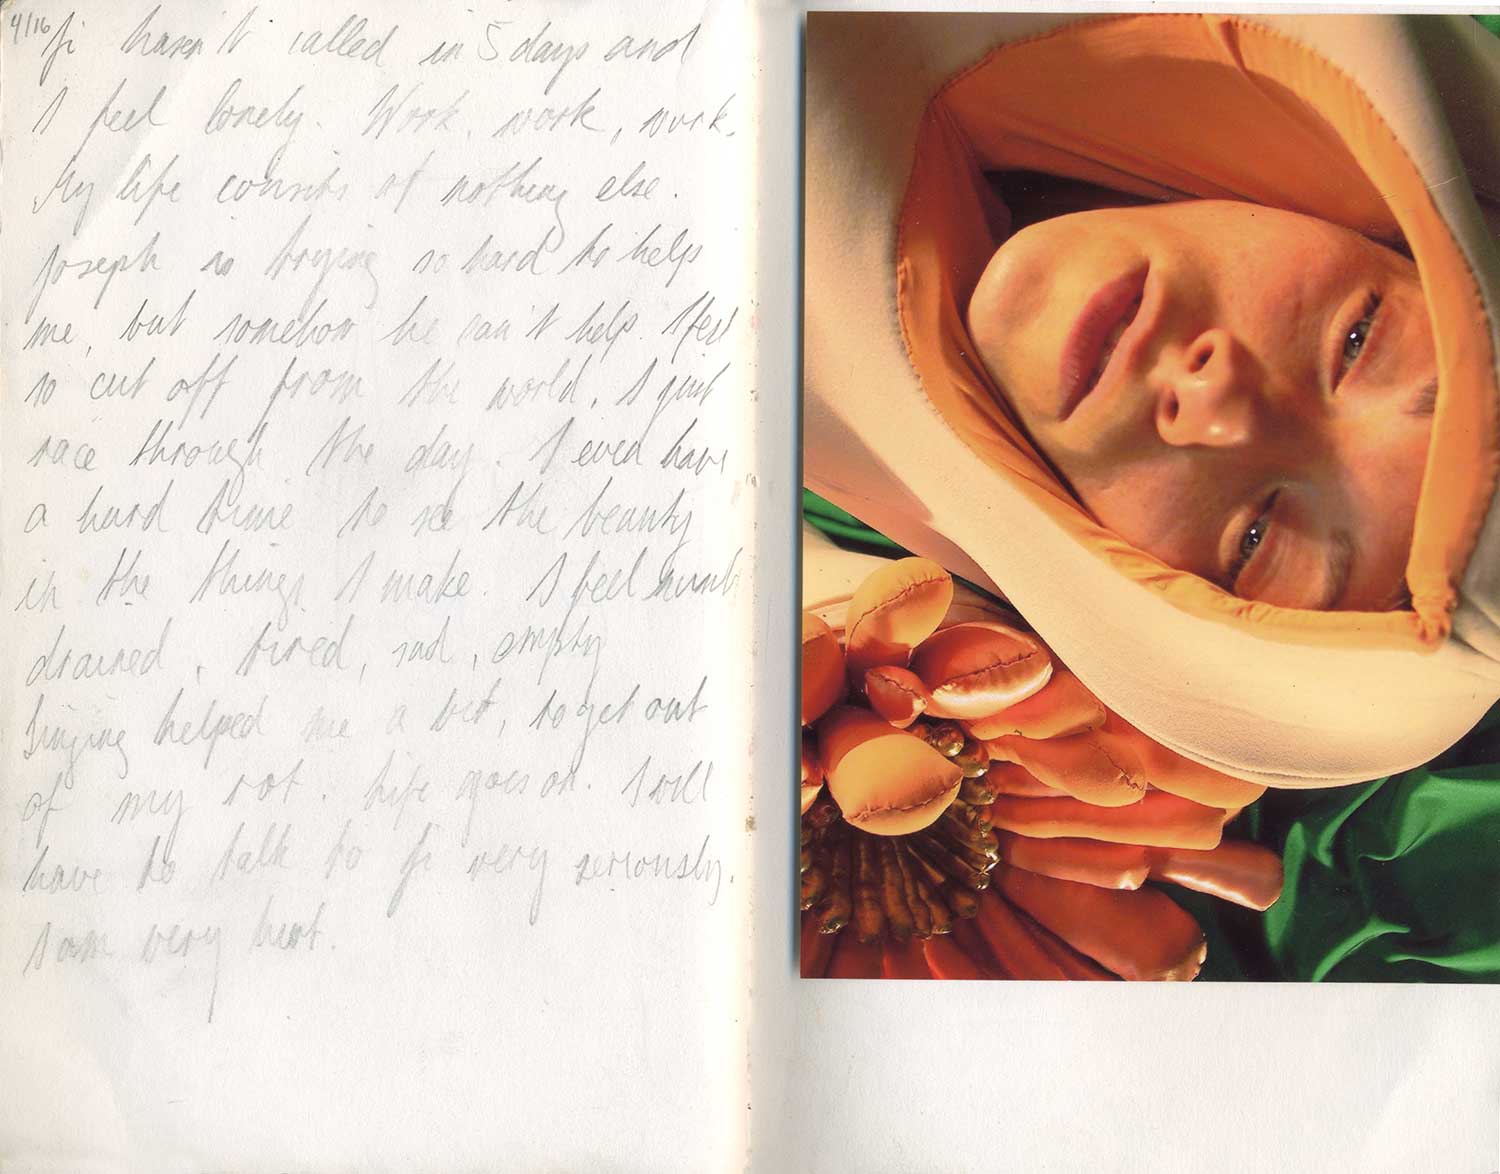 4/16 Ji haven't called in 5 days and
I feel lonely. Work, work, work.
My life consits of nothing else.
Joseph is trying so hard to help
me, but somehow he can't help. I feel
so cut off from the world, I just
race through the day. I even have
a hard time to see the beauty
in the things I make. I feel numb
drained, tired, sad, empty
Singing helped me a bit, to get out
of my rot. Life goes on. I will
have to talk to Ji very seriously.
I am very hurt.